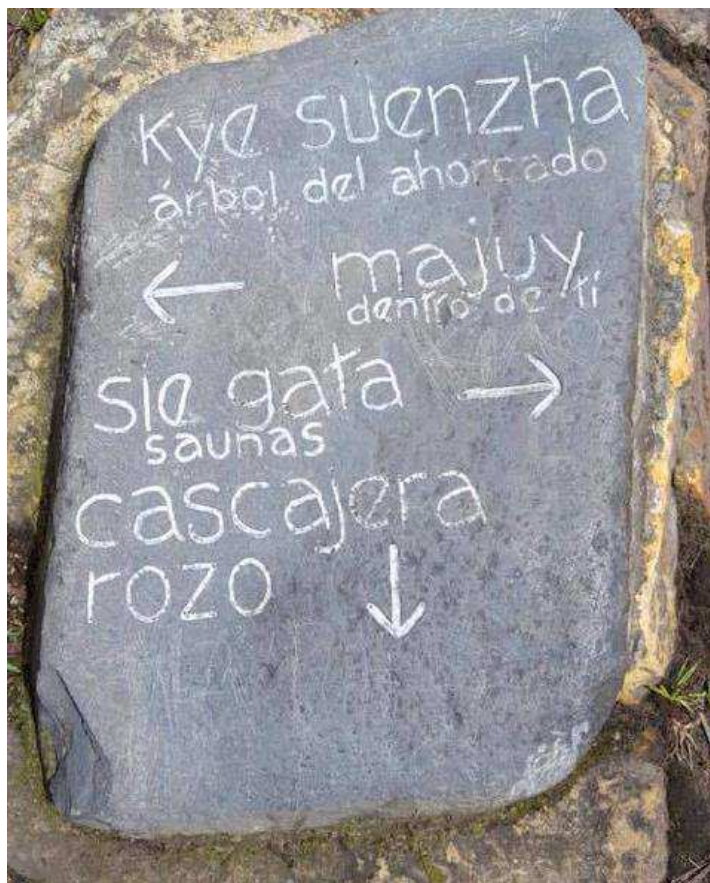 Kye suenzha
árbol del ahorcado
← majuy
dentro de tí
sie gata →
saunas
cascajera
rozo ↓